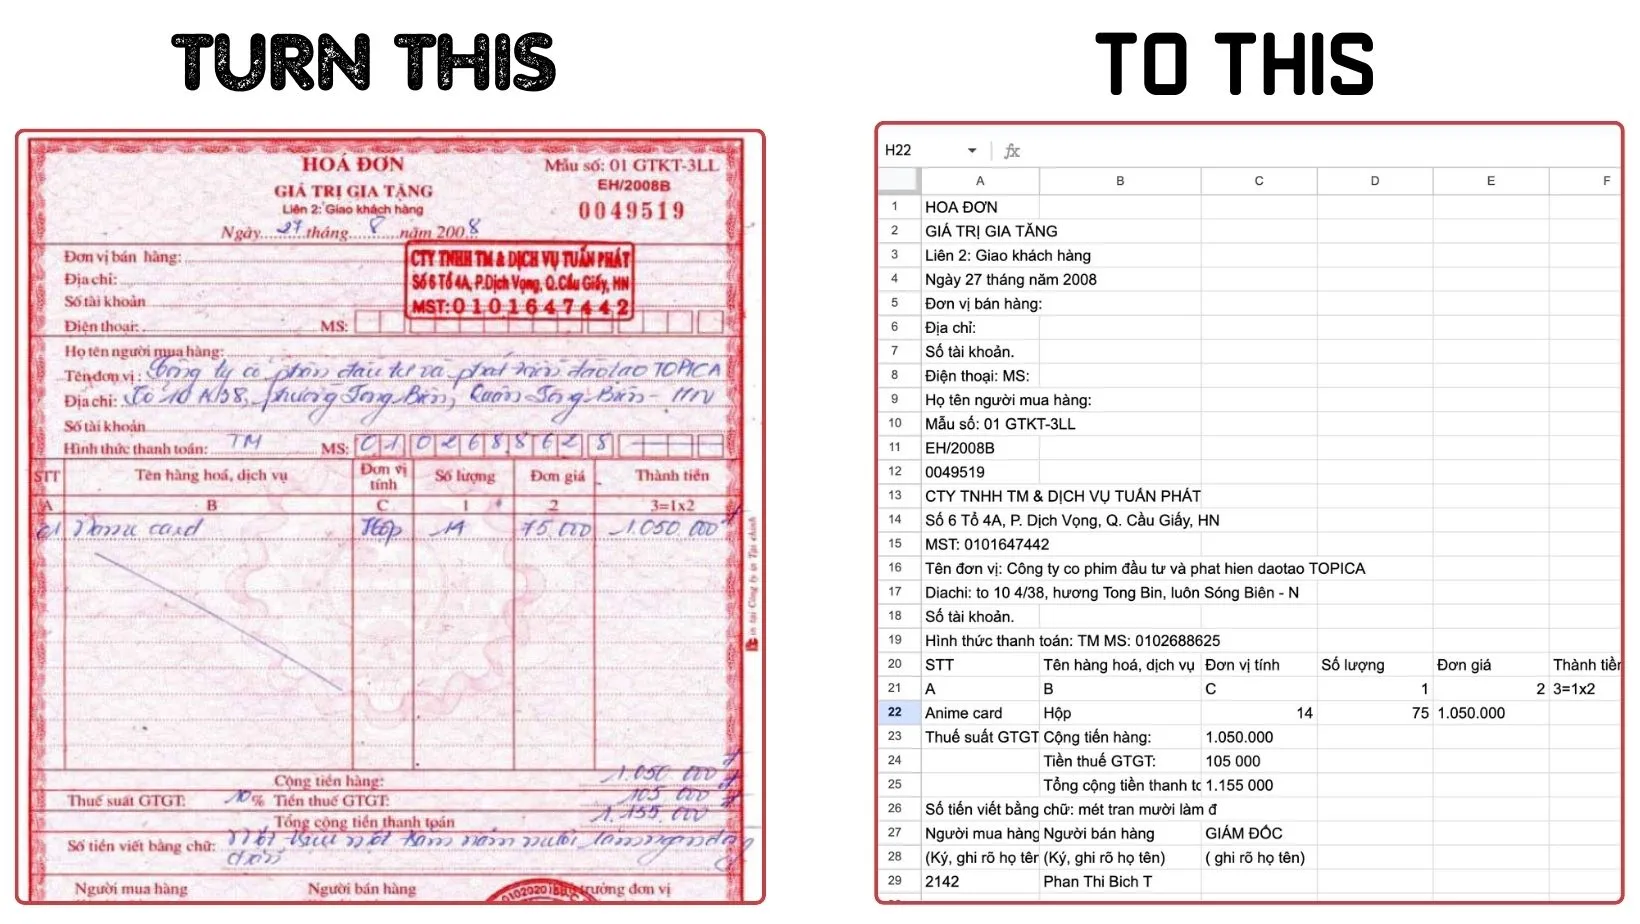 TURN THIS
TO THIS
HOÁ ĐƠN
GIÁ TRỊ GIA TĂNG
Liên 2: Giao khách hàng
Mẫu số: 01 GTKT-3LL
EH/2008B
0049519
Ngày 27 tháng 8 năm 2008
Đơn vị bán hàng:
CTY TNHH TM & DỊCH VỤ TUẤN PHÁT
Địa chỉ:
Số 6 Tổ 4A, P.Dịch Vọng, Q.Cầu Giấy, HN
Số tài khoản
MST: 0101647442
Điện thoại: MS:
Họ tên người mua hàng:
Tên đơn vị: Công ty cổ phần đầu tư và phát triển đào tạo TOPICA
Địa chỉ: Tổ 10 Phường Quận HN
Số tài khoản
Hình thức thanh toán: TM MS: 0102688625
STT Tên hàng hoá, dịch vụ Đơn vị tính Số lượng Đơn giá Thành tiền
A B C 1 2 3=1x2
01 Name card Hộp 14 75.000 1.050.000đ
Cộng tiền hàng: 1.050.000đ
Thuế suất GTGT: 10% Tiền thuế GTGT: 105 000đ
Tổng cộng tiền thanh toán 1.155.000
Số tiền viết bằng chữ: Một triệu một trăm năm mươi lăm ngàn đồng
chẵn
Người mua hàng Người bán hàng trưởng đơn vị
H22 fx
A B C D E F
1 HOA ĐƠN
2 GIÁ TRỊ GIA TĂNG
3 Liên 2: Giao khách hàng
4 Ngày 27 tháng năm 2008
5 Đơn vị bán hàng:
6 Địa chỉ:
7 Số tài khoản.
8 Điện thoại: MS:
9 Họ tên người mua hàng:
10 Mẫu số: 01 GTKT-3LL
11 EH/2008B
12 0049519
13 CTY TNHH TM & DỊCH VỤ TUẤN PHÁT
14 Số 6 Tổ 4A, P. Dịch Vọng, Q. Cầu Giấy, HN
15 MST: 0101647442
16 Tên đơn vị: Công ty co phim đầu tư và phat hien daotao TOPICA
17 Diachi: to 10 4/38, hương Tong Bin, luôn Sóng Biên - N
18 Số tài khoản.
19 Hình thức thanh toán: TM MS: 0102688625
20 STT Tên hàng hoá, dịch vụ Đơn vị tính Số lượng Đơn giá Thành tiền
21 A B C 1 2 3=1x2
22 Anime card Hộp 14 75 1.050.000
23 Thuế suất GTGT Cộng tiền hàng: 1.050.000
24 Tiền thuế GTGT: 105 000
25 Tổng cộng tiền thanh tc 1.155 000
26 Số tiền viết bằng chữ: mét tran mười làm đ
27 Người mua hàng Người bán hàng GIÁM ĐỐC
28 (Ký, ghi rõ họ tên (Ký, ghi rõ họ tên) ( ghi rõ họ tên)
29 2142 Phan Thi Bich T